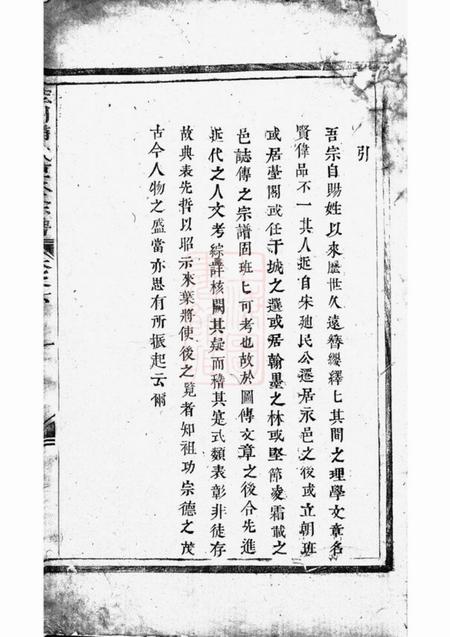 引
吾宗自賜姓以來歷世久遠簪纓繹匕其間之理學文章名
賢偉品不一其人迨自宋迪民公遷居承邑之後或立朝班
或居臺閣或任于城之選或居翰墨之林或堅節凌霜載之
邑誌傳之宗譜固班匕可考也故於圖傳文章之後令先進
近代之人文考綜詳核闕其疑而稽其寔式類表彰非徒存
故典表先哲以昭示來葉將使後之覽者知祖功宗德之茂
古今人物之盛當亦思有所振起云爾